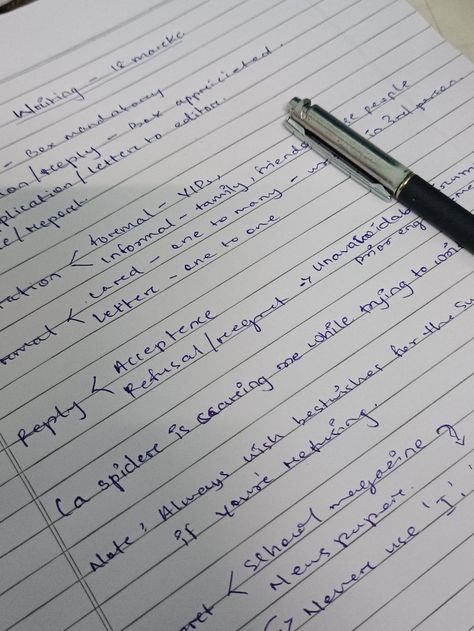 Writing - 18 marks
- Box mandatory
/reply - Box appriciated.
plication/letter to editor.
/report
formal - VIPs,
Informal - family, friends, people
card - one to many - in 3rd person.
letter - one to one
Reply < Acceptence
Refusal/regret → unavoidable
prior eng
(a spider is scaring me while trying to
Note: Always wish bestwishes for the su
if you're refusing.
< School magazine
News paper.
→ Never use 'I',